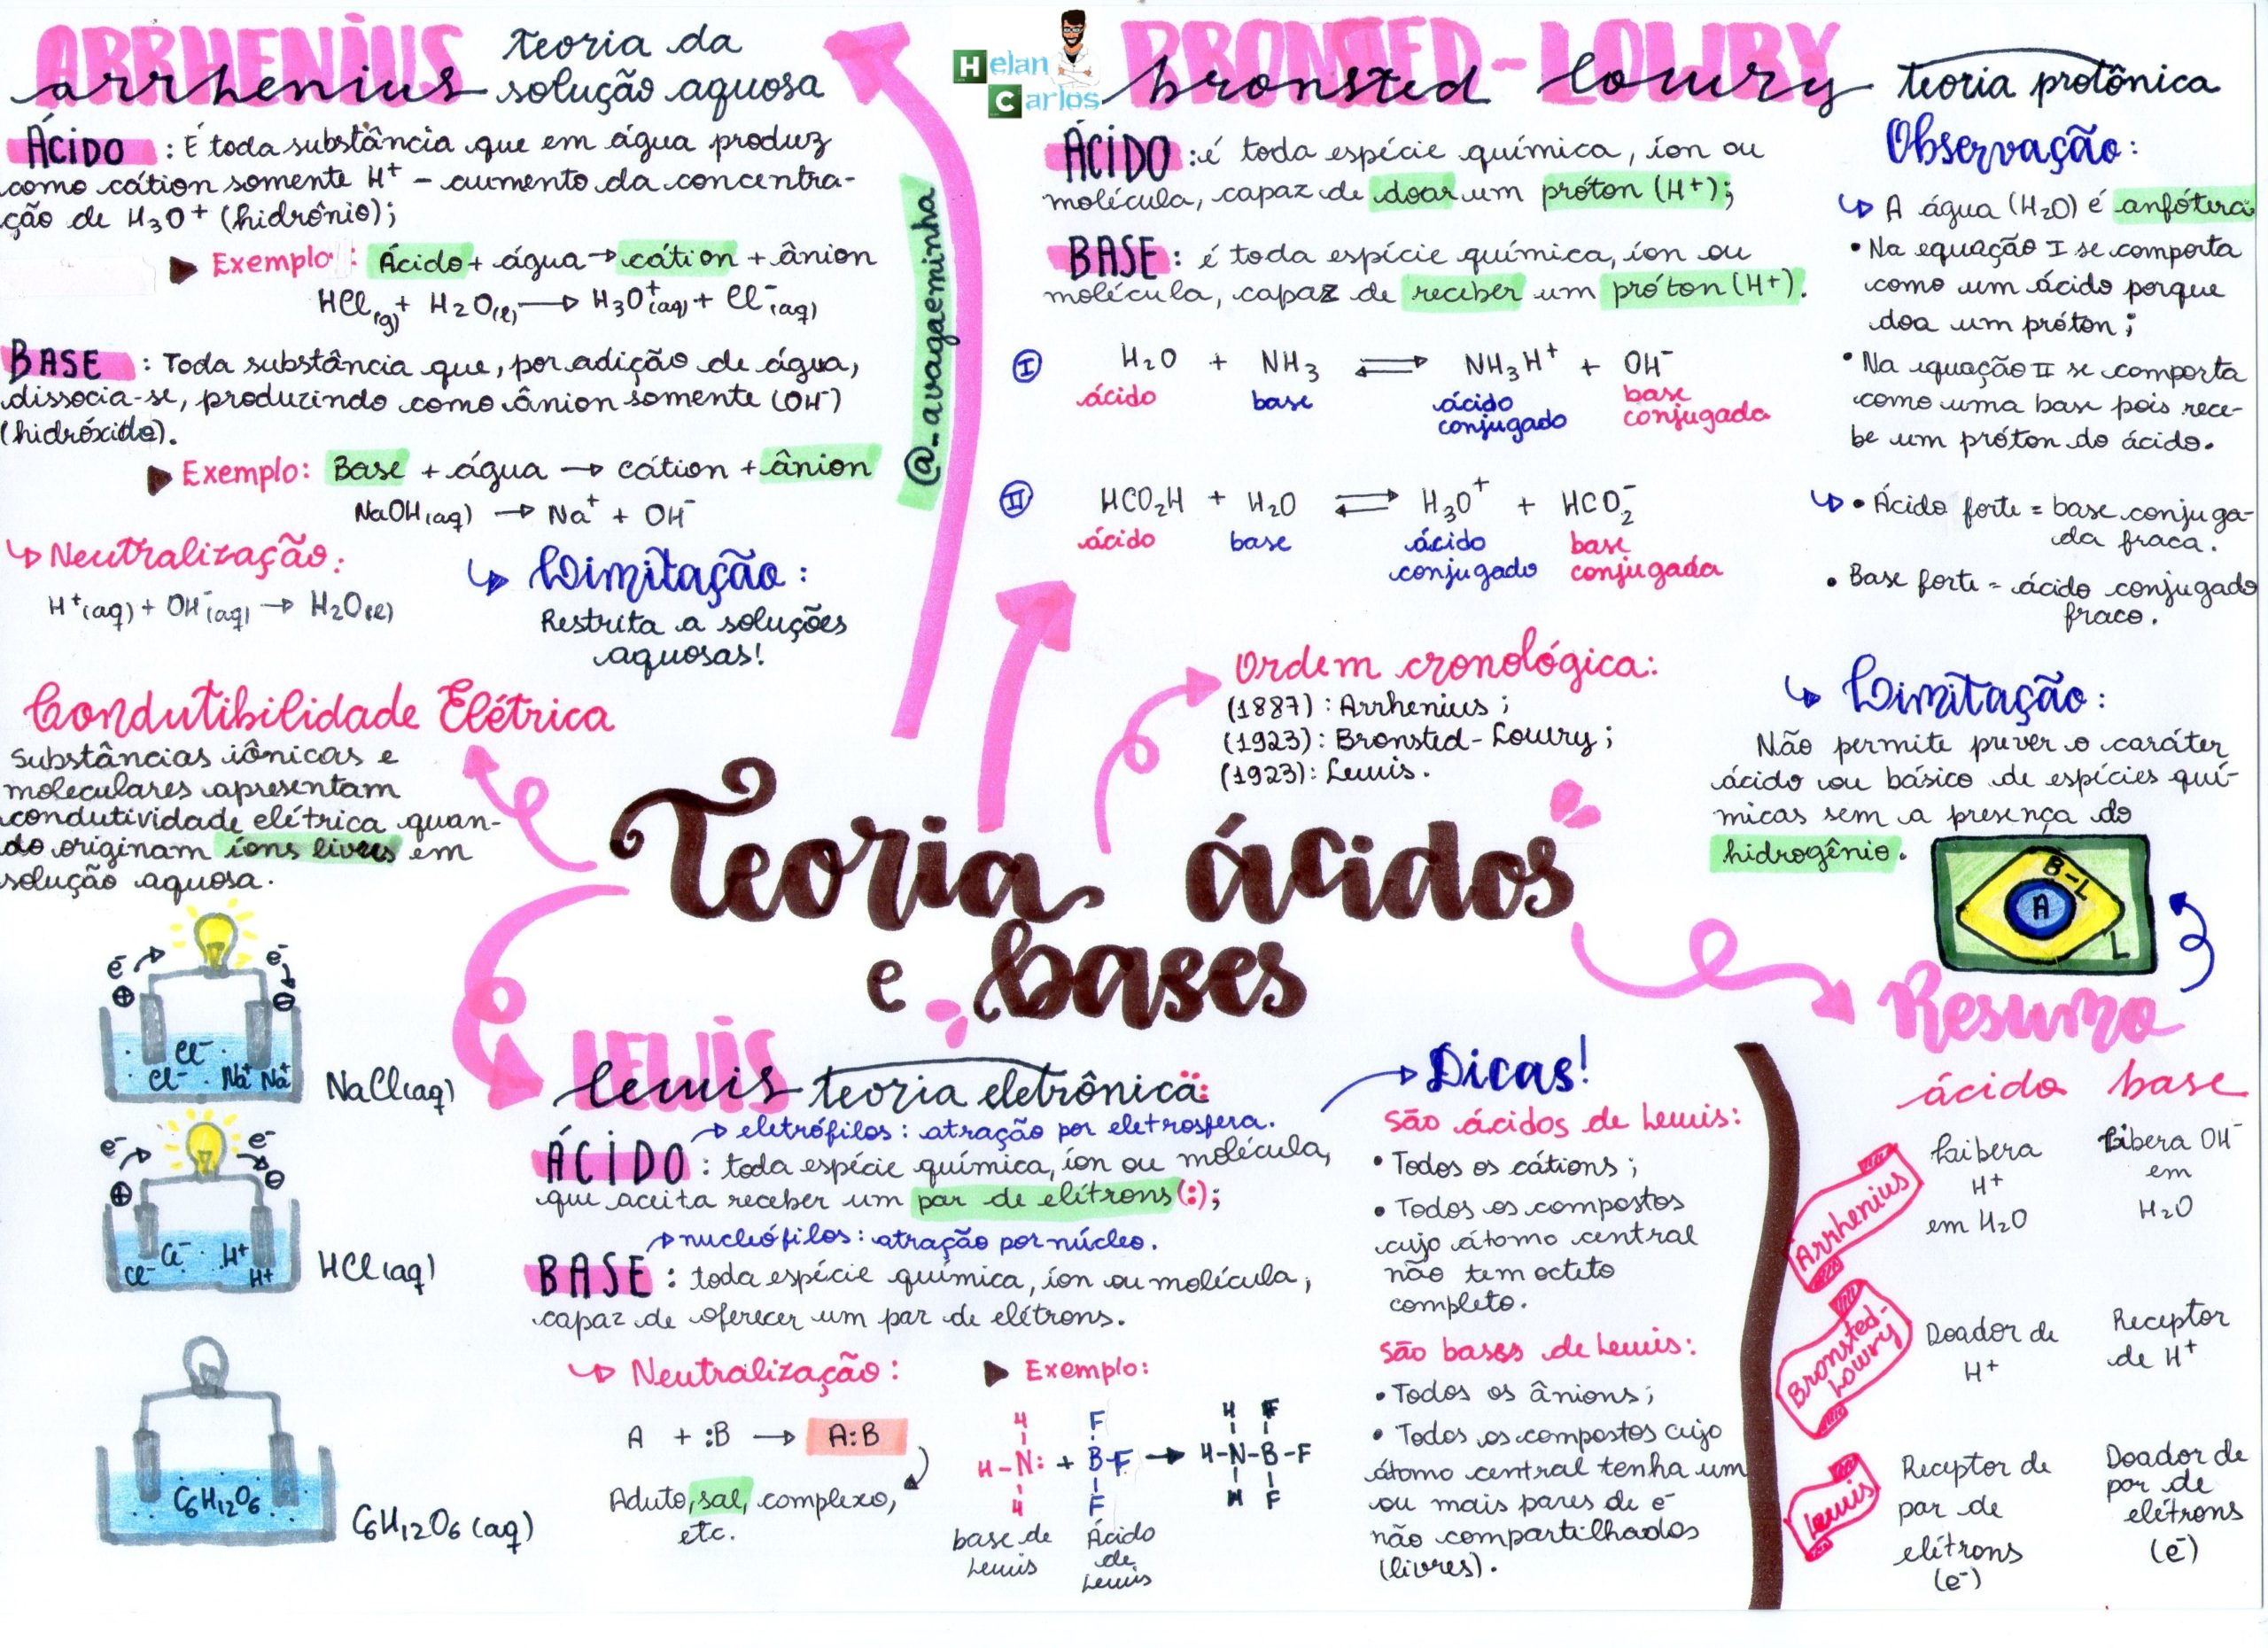 ARRHENIUS
arrhenius teoria da
solução aquosa
ÁCIDO : É toda substância que em água produz
como cátion somente H⁺ – aumento da concentra-
ção de H₃O⁺ (hidrônio);
Exemplo : Ácido + água → cátion + ânion
HCl(g) + H₂O(l) → H₃O⁺(aq) + Cl⁻(aq)
BASE : Toda substância que, por adição de água,
dissocia-se, produzindo como ânion somente (OH⁻)
(hidróxido).
Exemplo: Base + água → cátion + ânion
NaOH(aq) → Na⁺ + OH⁻
↳ Neutralização:
H⁺(aq) + OH⁻(aq) → H₂O(l)
↳ Limitação:
Restrita a soluções
aquosas!
@_avagaeminha
Helan
Carlos
BRONSTED-LOWRY
bronsted lowry teoria protônica
ÁCIDO : é toda espécie química, íon ou
molécula, capaz de doar um próton (H⁺);
BASE : é toda espécie química, íon ou
molécula, capaz de receber um próton (H⁺).
I H₂O + NH₃ ⇌ NH₃H⁺ + OH⁻
ácido base ácido conjugado base conjugada
II HCO₂H + H₂O ⇌ H₃O⁺ + HCO₂⁻
ácido base ácido conjugado base conjugada
Observação:
↳ A água (H₂O) é anfótera
• Na equação I se comporta
como um ácido porque
doa um próton;
• Na equação II se comporta
como uma base pois rece-
be um próton do ácido.
↳ • Ácido forte = base conjuga-
da fraca.
• Base forte = ácido conjugado
fraco.
↳ Limitação:
Não permite prever o caráter
ácido ou básico de espécies quí-
micas sem a presença do
hidrogênio.
Ordem cronológica:
(1887) : Arrhenius;
(1923): Bronsted-Lowry;
(1923): Lewis.
Condutibilidade Elétrica
Substâncias iônicas e
moleculares apresentam
condutividade elétrica quan-
do originam íons livres em
solução aquosa.
e⁻ e⁻
⊕ ⊖
Cl⁻
Cl⁻ Na⁺ Na⁺
NaCl(aq)
e⁻ e⁻
⊕ ⊖
Cl⁻ Cl⁻ H⁺ H⁺
HCl(aq)
C₆H₁₂O₆
C₆H₁₂O₆(aq)
Teoria ácidos
e bases
LEWIS
lewis teoria eletrônica:
→ eletrófilos : atração por eletrosfera.
ÁCIDO : toda espécie química, íon ou molécula,
que aceita receber um par de elétrons (:);
→ nucleófilos : atração por núcleo.
BASE : toda espécie química, íon ou molécula,
capaz de oferecer um par de elétrons.
↳ Neutralização:
A + :B → A:B
Aduto, sal, complexo,
etc.
Exemplo:
H F H F
H-N: + B-F → H-N-B-F
H F H F
base de
Lewis
Ácido
de
Lewis
→ Dicas!
São ácidos de Lewis:
• Todos os cátions;
• Todos os compostos
cujo átomo central
não tem octeto
completo.
São bases de Lewis:
• Todos os ânions;
• Todos os compostos cujo
átomo central tenha um
ou mais pares de e⁻
não compartilhados
(livres).
B-L
A
L
Resumo
ácido base
Arrhenius
Libera
H⁺
em H₂O
Libera OH⁻
em
H₂O
Bronsted-
Lowry
Doador de
H⁺
Receptor
de H⁺
Lewis
Receptor de
par de
elétrons
(e⁻)
Doador de
par de
elétrons
(e⁻)